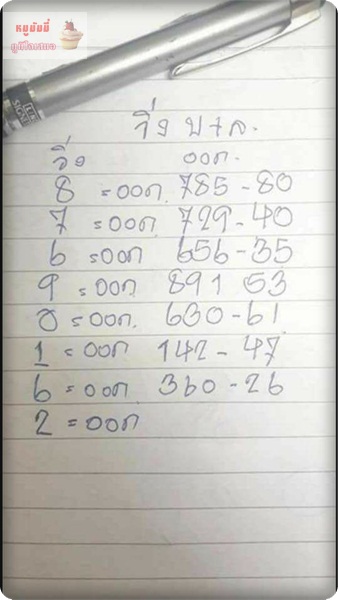 หมูบัมบี้
ภูมิใจเสนอ
วิ่ง บ+ล.
วิ่ง ออก.
8 =ออก. 785-80
7 =ออก. 729-40
6 =ออก 656-35
9 =ออก. 891 53
0 =ออก. 630-61
1 =ออก 142-47
6 =ออก. 360-26
2 =ออก